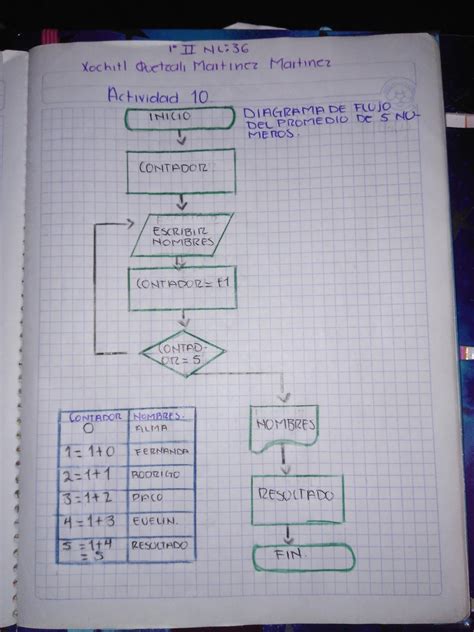 1° II NL:36
Xochitl Quetzali Martinez Martinez
Actividad 10
DIAGRAMA DE FLUJO
DEL PROMEDIO DE 5 NU
MEROS.
INICIO
CONTADOR
ESCRIBIR
NOMBRES
CONTADOR= +1
CONTAD-
OR= 5
NOMBRES
RESULTADO
FIN.
CONTADOR NOMBRES.
0 ALMA
1=1+0 FERNANDA
2=1+1 RODRIGO
3=1+2 PACO
4=1+3 EVELIN.
5=1+4 RESULTADO
=5